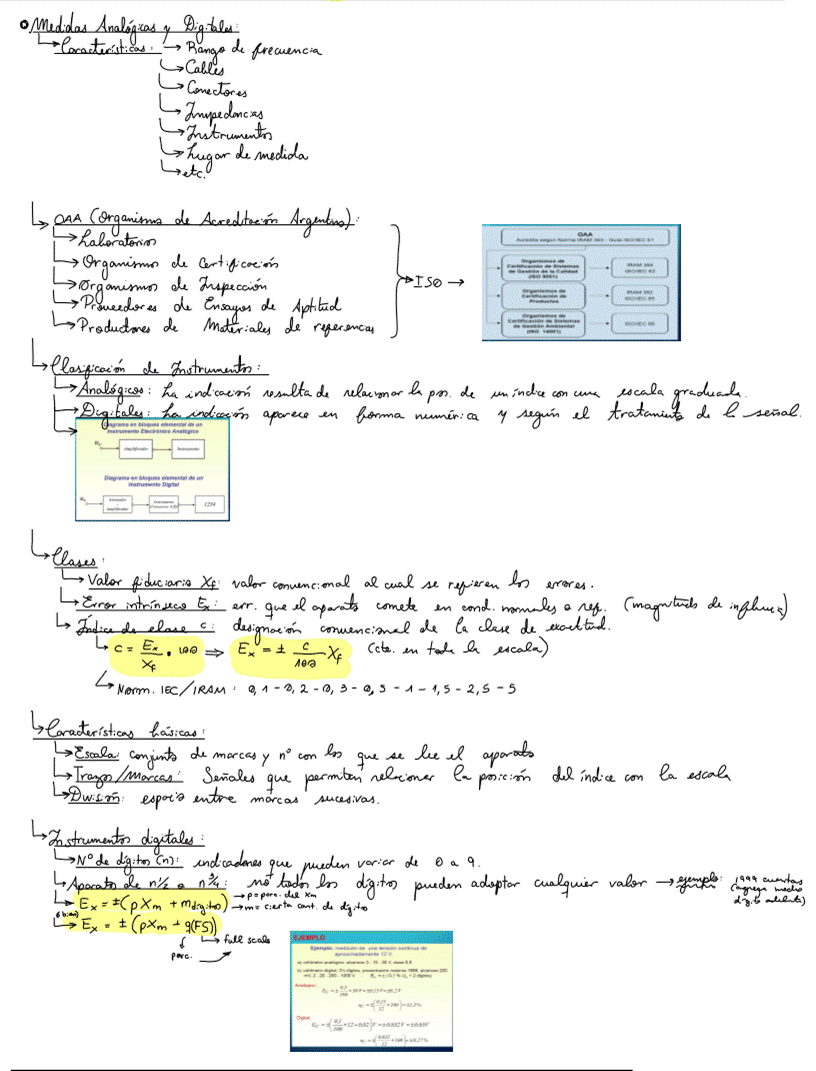 Medidas Analógicas y Digitales:
Características: → Rango de frecuencia
Cables
Conectores
Impedancias
Instrumentos
Lugar de medida
etc.
OAA (Organismo de Acreditación Argentino):
Laboratorios
Organismos de Certificación
Organismos de Inspección
Proveedores de Ensayos de Aptitud
Productores de Materiales de referencias
ISO →
OAA
Acredita según Norma IRAM 393 - Guía ISO/IEC 61
Organismos de
Certificación de Sistemas
de Gestión de la Calidad
(ISO 9001)
IRAM 394
ISO/IEC 62
Organismos de
Certificación de
Productos
IRAM 352
ISO/IEC 65
Organismos de
Certificación de Sistemas
de Gestión Ambiental
(ISO 14001)
ISO/IEC 66
Clasificación de Instrumentos:
Analógicos: La indicación resulta de relacionar la pos. de un índice con una escala graduada.
Digitales: La indicación aparece en forma numérica y según el tratamiento de la señal.
Diagrama en bloques elemental de un
Instrumento Electrónico Analógico
Amplificador
Instrumento
Diagrama en bloques elemental de un
Instrumento Digital
Atenuador
Amplificador
Instrumento
1234
Clases:
Valor fiduciario Xf: valor convencional al cual se refieren los errores.
Error intrínseco Ex: err. que el aparato comete en cond. normales o ref. (magnitudes de influencia)
Índice de clase c: designación convencional de la clase de exactitud.
c = Ex/Xf . 100 ⇒ Ex = ± c/100 Xf (cte. en toda la escala)
Norm. IEC/IRAM: 0,1 - 0,2 - 0,3 - 0,5 - 1 - 1,5 - 2,5 - 5
Características básicas:
Escala: conjunto de marcas y n° con los que se lee el aparato
Trazos/Marcas: Señales que permiten relacionar la posición del índice con la escala
División: espacio entre marcas sucesivas.
Instrumentos digitales:
N° de dígitos (n): indicadores que pueden variar de 0 a 9.
Aparato de n 1/2 o n 3/4: no todos los dígitos pueden adoptar cualquier valor → ejemplo: 1999 cuentas
(agrega medio
dígito adelante)
Ex = ±(pXm + m dígitos) → p = porc. del Xm
→ m = cierta cant. de dígitos
Ex = ± (pXm + q(FS))
full scale
porc.
EJEMPLO
Ejemplo: medición de una tensión continua de
aproximadamente 12 V
Analógico:
Digital: